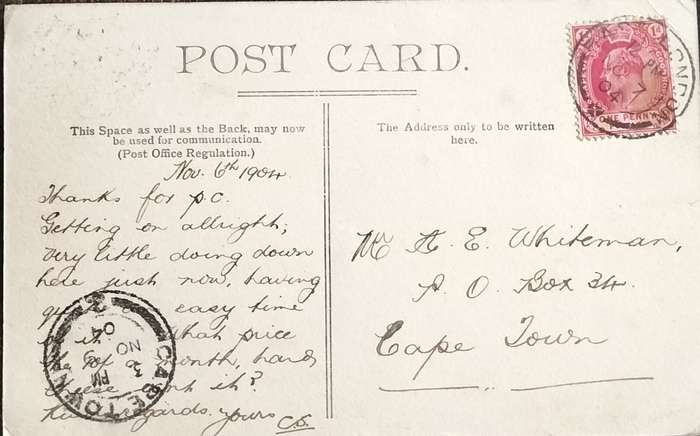 POST CARD.
This Space as well as the Back, may now
be used for communication.
(Post Office Regulation.)
The Address only to be written
here.
Nov. 6th 1904.
Thanks for p.c.
Getting on allright;
very little doing down
here just now, having
easy time
that price
month, hard
it?
regards. Yours C.S.
Mr A. E. Whiteman,
P. O. Box 34.
Cape Town
EAST LONDON
2 PM
NO 7
04
ONE PENNY
CAPE TOWN
3 PM
NO
04
2